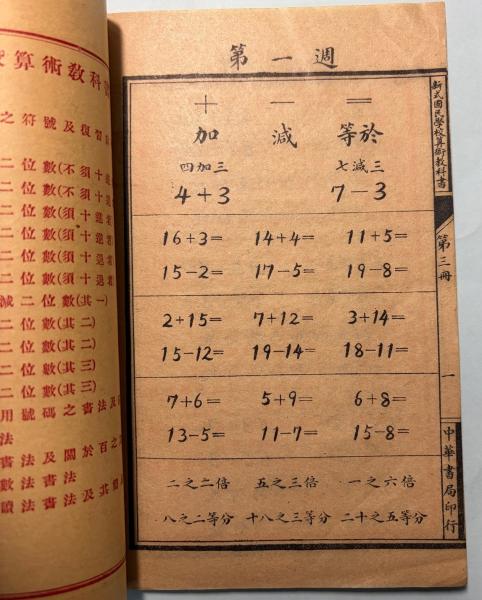 算術教科
之符號及復習
二位數(不須十進
二位數(不須十退
二位數(須十進
二位數(須十退
二位數(須十進
二位數(須十退
減二位數(其一)
二位數(其二)
二位數(其二)
二位數(其三)
二位數(其三)
用號碼之書法及
法
書法及關於百之
數法書法
讀法書法及其
第一週
+ − =
加 減 等於
四加三 七減三
4+3 7−3
16+3= 14+4= 11+5=
15−2= 17−5= 19−8=
2+15= 7+12= 3+14=
15−12= 19−14= 18−11=
7+6= 5+9= 6+8=
13−5= 11−7= 15−8=
二之二倍 五之三倍 一之六倍
八之二等分 十八之三等分 二十之五等分
新式國民學校算術教科書
第三冊
一
中華書局印行